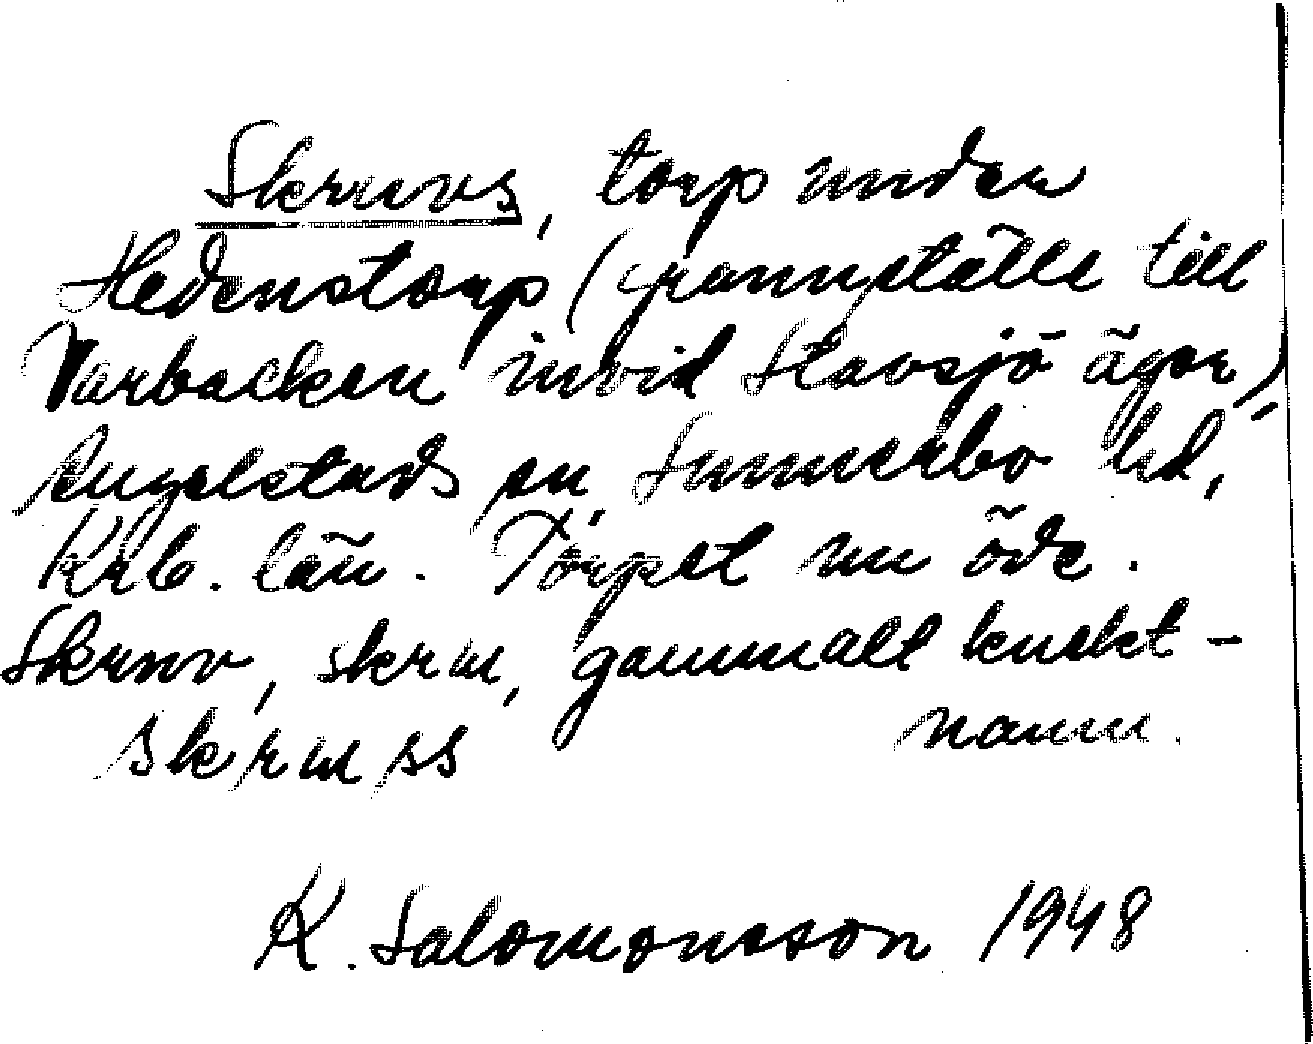 Skruvs, torp under
Hedenstorp (grannställe till
Varbacken invid Stavsjö ägor),
Angelstads sn, Sunnerbo hd,
Krb. län. Torpet nu öde.
Skruv, skruv, gammalt knekt-
skruvss namn.
K. Salomonsson 1948